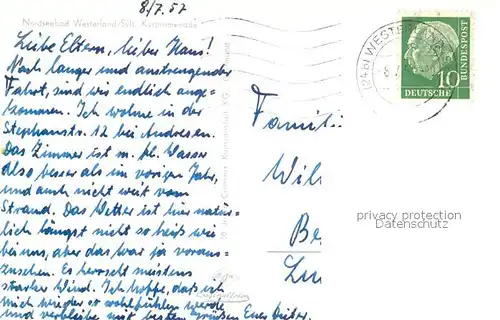 8/7.57
Nordseebad Westerland/Sylt. Kurpromenade
Liebe Eltern, lieber Hans!
Nach langer und anstrengender
Fahrt, sind wir endlich ange-
kommen. Ich wohne in der
Stephanstr. 12 bei Andresen.
Das Zimmer ist m. fl. Wasser
also besser als im vorigen Jahr,
und auch nicht weit vom
Strand. Das Wetter ist hier natür-
lich längst nicht so heiß wie
bei uns, aber das war ja voraus-
zusehen. Es herrscht meistens
starker Wind. Ich hoffe, daß ich
mich wieder so wohlfühlen werde
und verbleibe mit besten Grüßen Euer Dieter.
Famili
Wil
Be
Lu
(24b) WESTER
DEUTSCHE
BUNDESPOST
10
privacy protection
Datenschutz